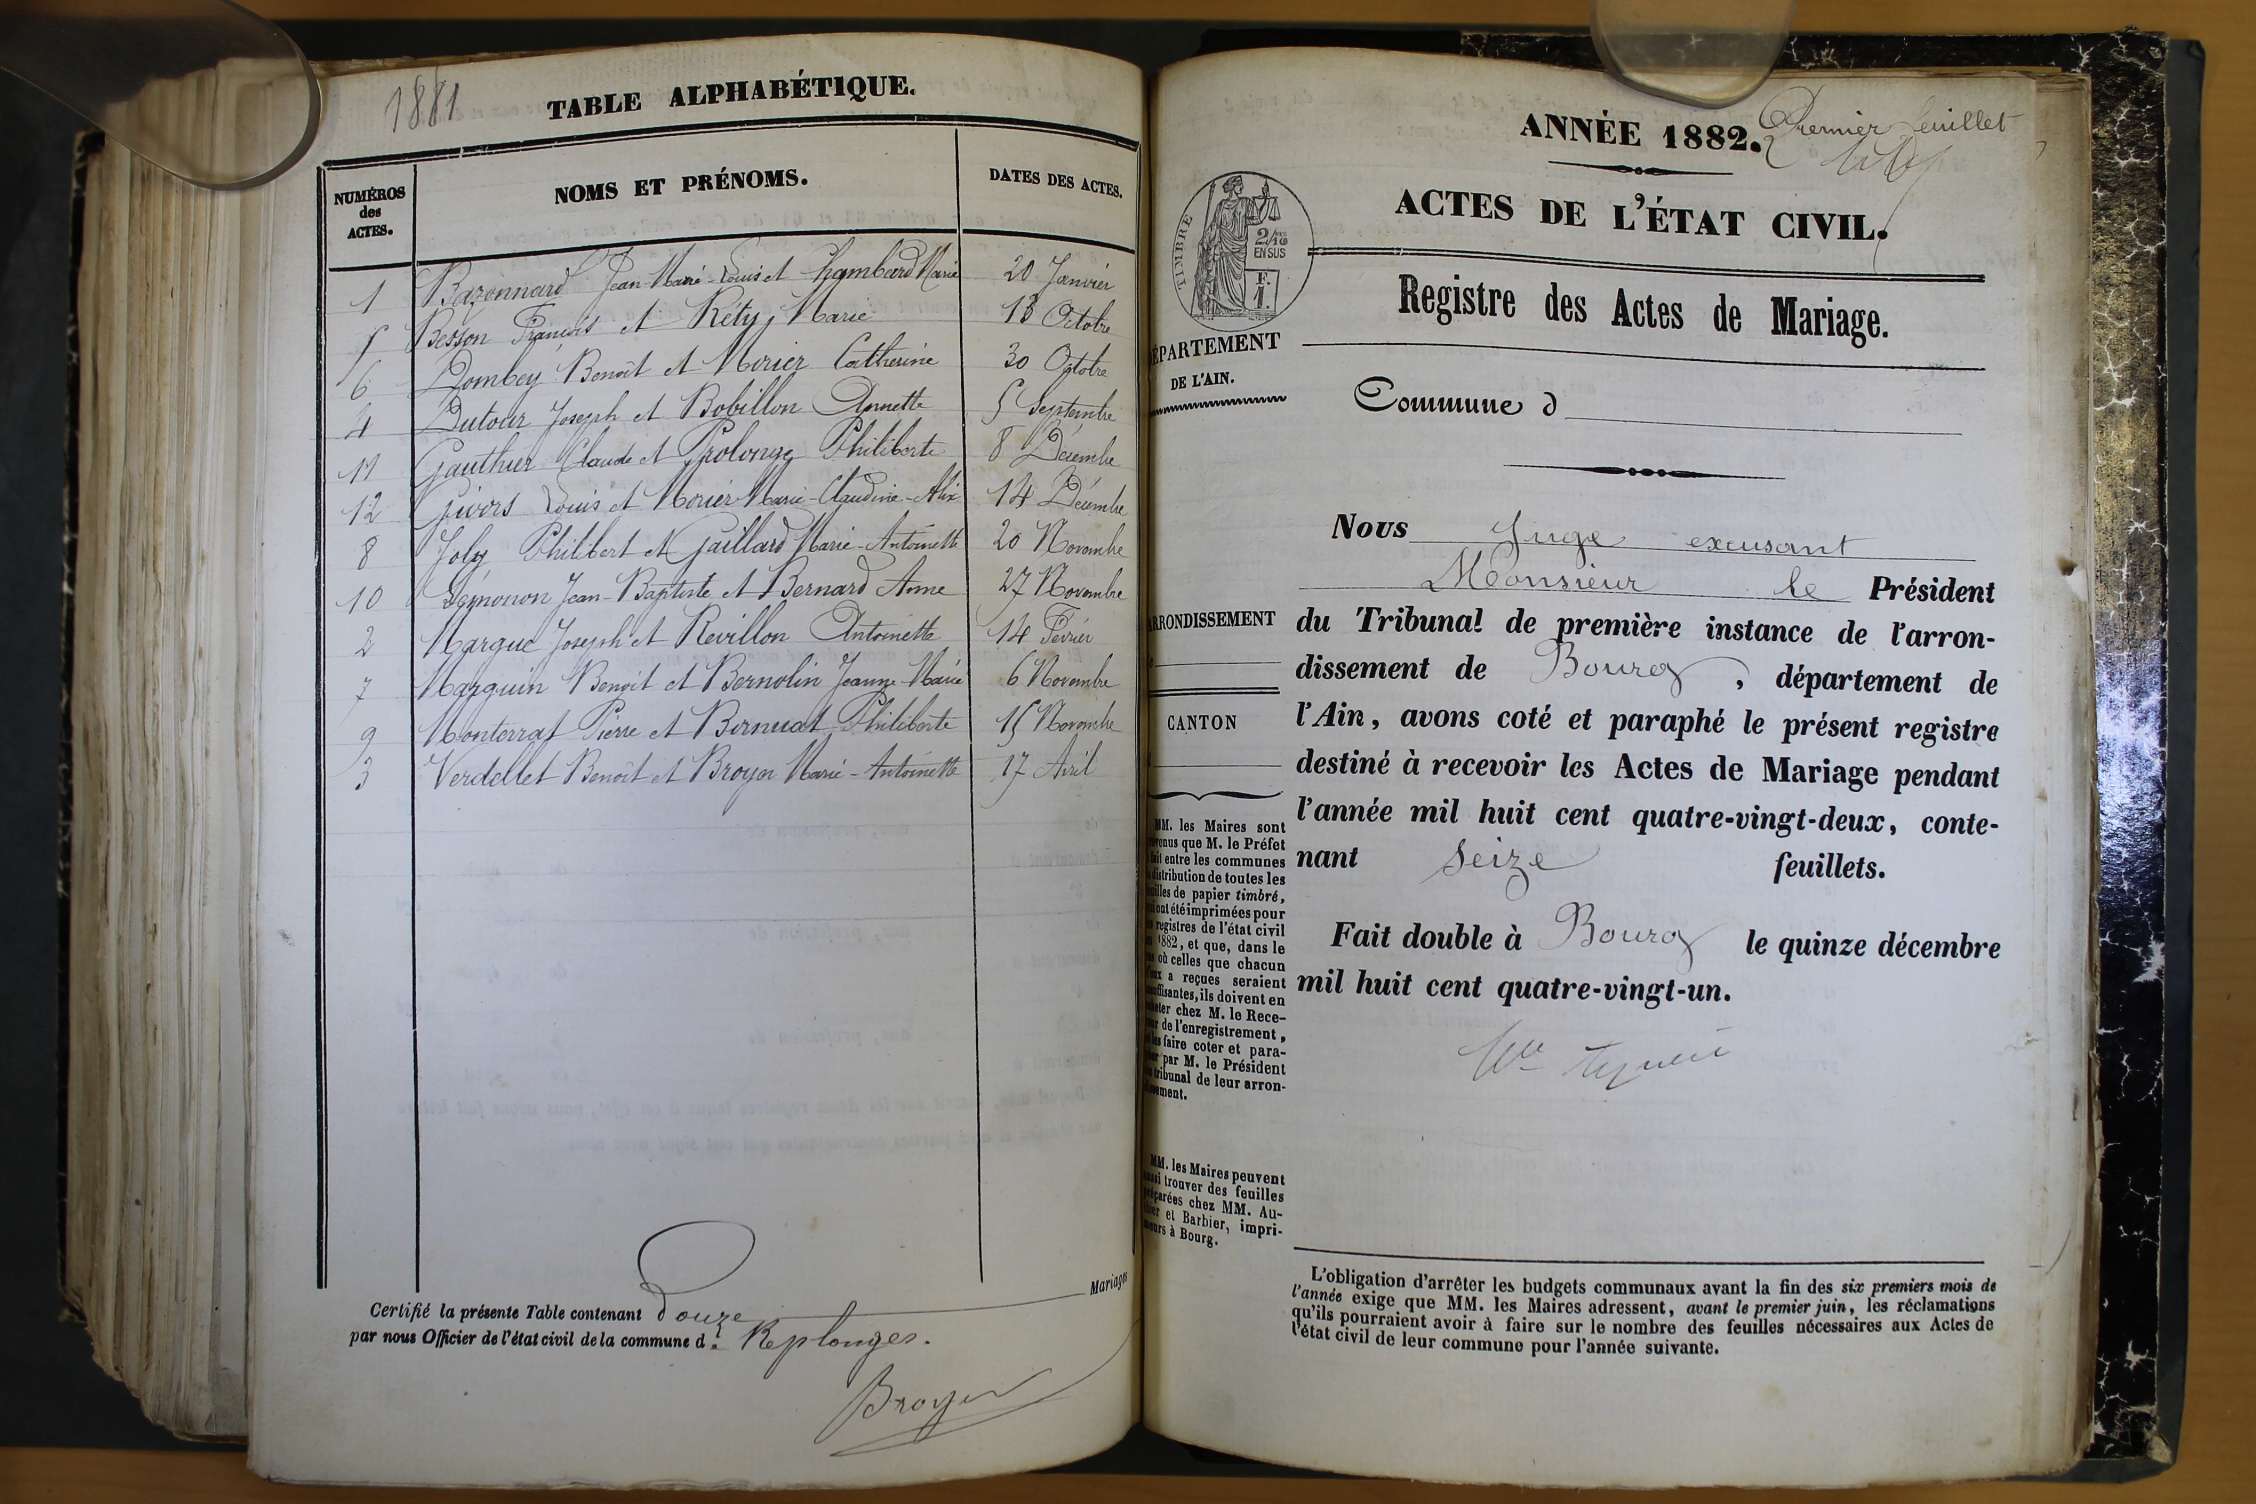 1881
TABLE ALPHABÉTIQUE.
NUMÉROS
des
ACTES.
NOMS ET PRÉNOMS.
DATES DES ACTES.
1 Bazonnard Jean-Marie-Louis et Chambard Marie 20 Janvier
5 Besson François et Réty Marie 13 Octobre
6 Dombey Benoît et Morier Catherine 30 Octobre
4 Dutour Joseph et Bobillon Annette 5 Septembre
11 Gauthier Claude et Prolonge Philiberte 8 Décembre
12 Givors Louis et Morier Marie-Claudine-Alix 14 Décembre
8 Joly Philibert et Gaillard Marie-Antoinette 20 Novembre
10 Lémonon Jean-Baptiste et Bernard Anne 27 Novembre
2 Margue Joseph et Revillon Antoinette 14 Février
7 Mazquin Benoît et Bernolin Jeanne-Marie 6 Novembre
9 Monterrat Pierre et Bernuat Philiberte 15 Novembre
3 Verdellet Benoît et Broyer Marie-Antoinette 17 Avril
Certifié la présente Table contenant Douze Mariages
par nous Officier de l'état civil de la commune de Replonges.
Broyer
ANNÉE 1882.
Premier feuillet
ACTES DE L'ÉTAT CIVIL.
TIMBRE
2/10
EN SUS
F.
1.
Registre des Actes de Mariage.
DÉPARTEMENT
DE L'AIN.
Commune d
Nous Juge excusant
Monsieur le Président
du Tribunal de première instance de l'arron-
dissement de Bourg, département de
l'Ain, avons coté et paraphé le présent registre
destiné à recevoir les Actes de Mariage pendant
l'année mil huit cent quatre-vingt-deux, conte-
nant seize feuillets.
Fait double à Bourg le quinze décembre
mil huit cent quatre-vingt-un.
ARRONDISSEMENT
CANTON
MM. les Maires sont
venus que M. le Préfet
fait entre les communes
distribution de toutes les
uilles de papier timbré,
ont été imprimées pour
registres de l'état civil
1882, et que, dans le
où celles que chacun
eux a reçues seraient
uffisantes, ils doivent en
heter chez M. le Rece-
ur de l'enregistrement,
les faire coter et para-
er par M. le Président
tribunal de leur arron-
ssement.
MM. les Maires peuvent
ssi trouver des feuilles
éparées chez MM. Au-
et Barbier, impri-
meurs à Bourg.
L'obligation d'arrêter les budgets communaux avant la fin des six premiers mois de
l'année exige que MM. les Maires adressent, avant le premier juin, les réclamations
qu'ils pourraient avoir à faire sur le nombre des feuilles nécessaires aux Actes de
l'état civil de leur commune pour l'année suivante.